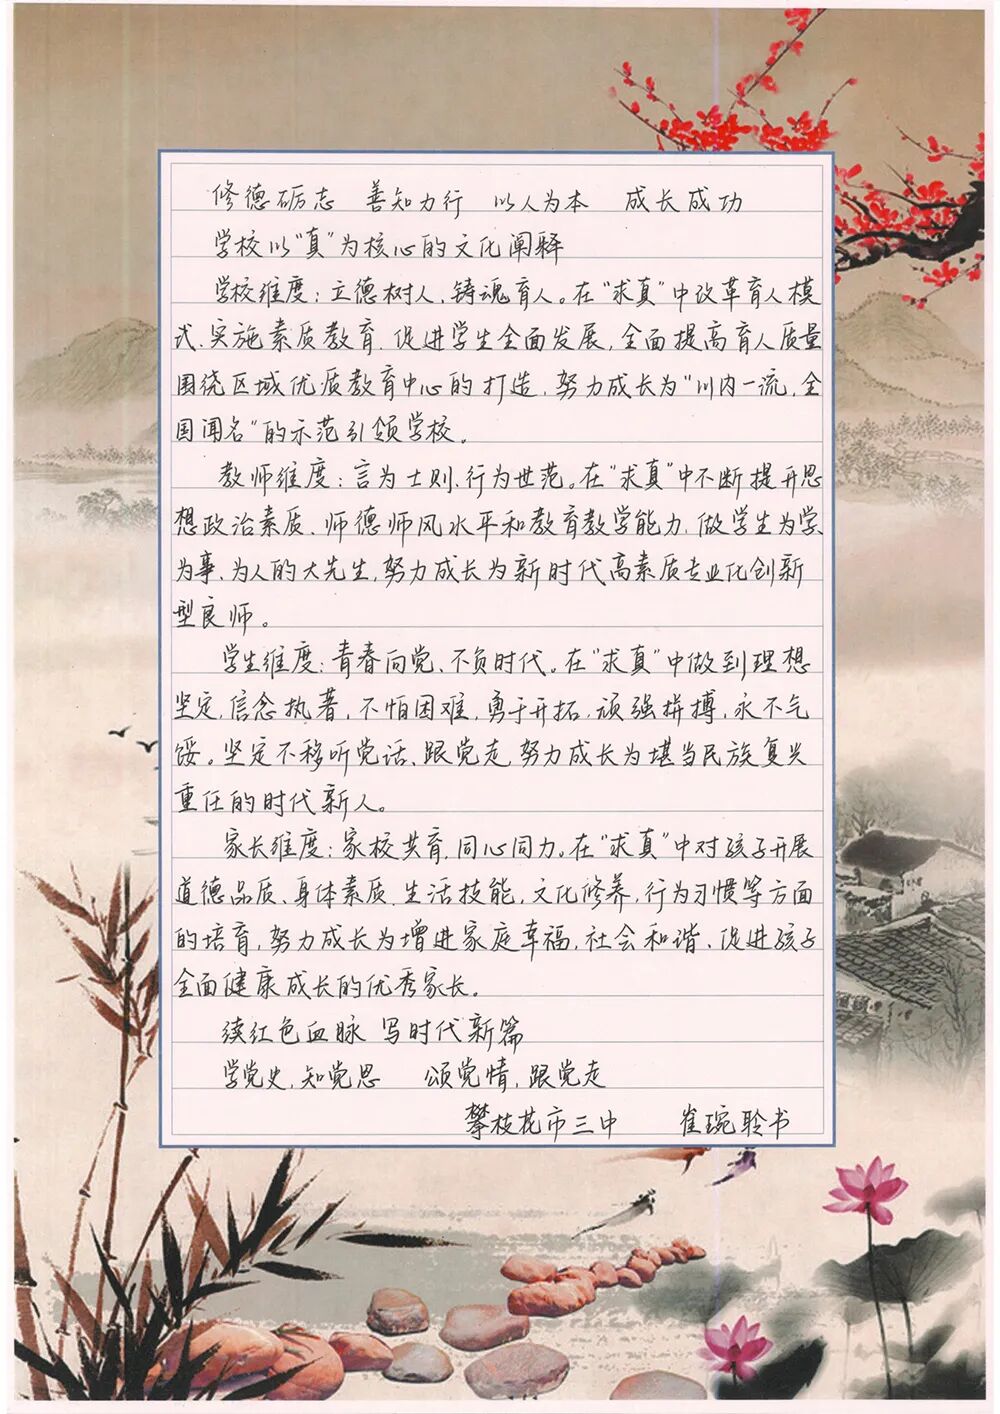 修德砺志 善知力行 以人为本 成长成功
学校以“真”为核心的文化阐释
学校维度：立德树人、铸魂育人。在“求真”中改革育人模
式、实施素质教育、促进学生全面发展，全面提高育人质量
围绕区域优质教育中心的打造，努力成长为“川内一流，全
国闻名”的示范引领学校。
教师维度：言为士则、行为世范。在“求真”中不断提升思
想政治素质、师德师风水平和教育教学能力，做学生为学、
为事、为人的大先生，努力成长为新时代高素质专业化创新
型良师。
学生维度：青春向党、不负时代。在“求真”中做到理想
坚定，信念执著，不怕困难，勇于开拓，顽强拼搏，永不气
馁。坚定不移听党话、跟党走，努力成长为堪当民族复兴
重任的时代新人。
家长维度：家校共育，同心同力。在“求真”中对孩子开展
道德品质、身体素质、生活技能，文化修养，行为习惯等方面
的培育，努力成长为增进家庭幸福，社会和谐、促进孩子
全面健康成长的优秀家长。
续红色血脉 写时代新篇
学党史，知党恩 颂党情，跟党走
攀枝花市三中 崔琬聆书